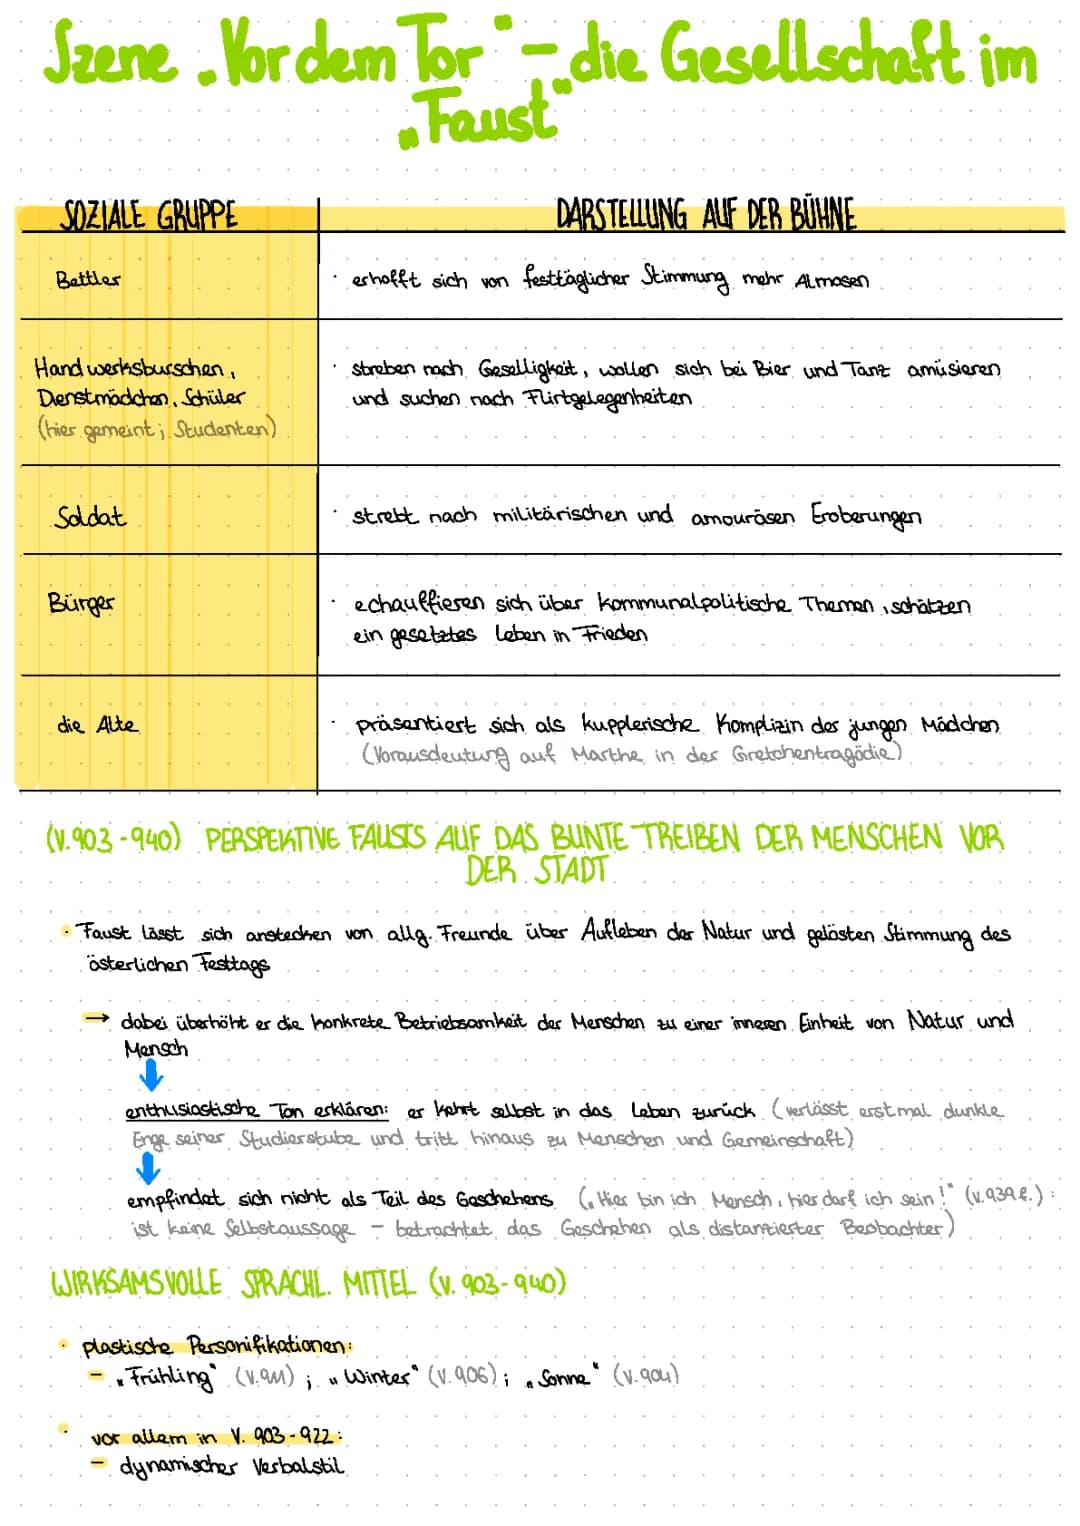 Szene „Vor dem Tor" – die Gesellschaft im
„Faust"
SOZIALE GRUPPE
DARSTELLUNG AUF DER BÜHNE
Bettler
· erhofft sich von festtäglicher Stimmung mehr Almosen
Handwerksburschen,
Dienstmädchen, Schüler
(hier gemeint; Studenten)
· streben nach Geselligkeit, wollen sich bei Bier und Tanz amüsieren
und suchen nach Flirtgelegenheiten
Soldat
· strebt nach militärischen und amourösen Eroberungen
Bürger
· echauffieren sich über kommunalpolitische Themen, schätzen
ein gesetztes Leben in Frieden
die Alte
· präsentiert sich als kupplerische Komplizin der jungen Mädchen
(Vorausdeutung auf Marthe in der Gretchentragödie)
(V.903-940) PERSPEKTIVE FAUSTS AUF DAS BUNTE TREIBEN DER MENSCHEN VOR
DER STADT
· Faust lässt sich anstecken von allg. Freunde über Aufleben der Natur und gelösten Stimmung des
österlichen Festtags
→ dabei überhöht er die konkrete Betriebsamkeit der Menschen zu einer inneren Einheit von Natur und
Mensch
↓
enthusiastische Ton erklären: er kehrt selbst in das Leben zurück (verlässt erstmal dunkle
Enge seiner Studierstube und tritt hinaus zu Menschen und Gemeinschaft)
↓
empfindet sich nicht als Teil des Geschehens („Hier bin ich Mensch, hier darf ich sein!" (v.939f.):
ist keine Selbstaussage – betrachtet das Geschehen als distanzierter Beobachter)
WIRKSAMSVOLLE SPRACHL. MITTEL (V. 903-940)
· plastische Personifikationen:
– „Frühling" (v.911); „Winter" (v.906); „Sonne" (v.904)
· vor allem in V. 903-922:
– dynamischer Verbalstil